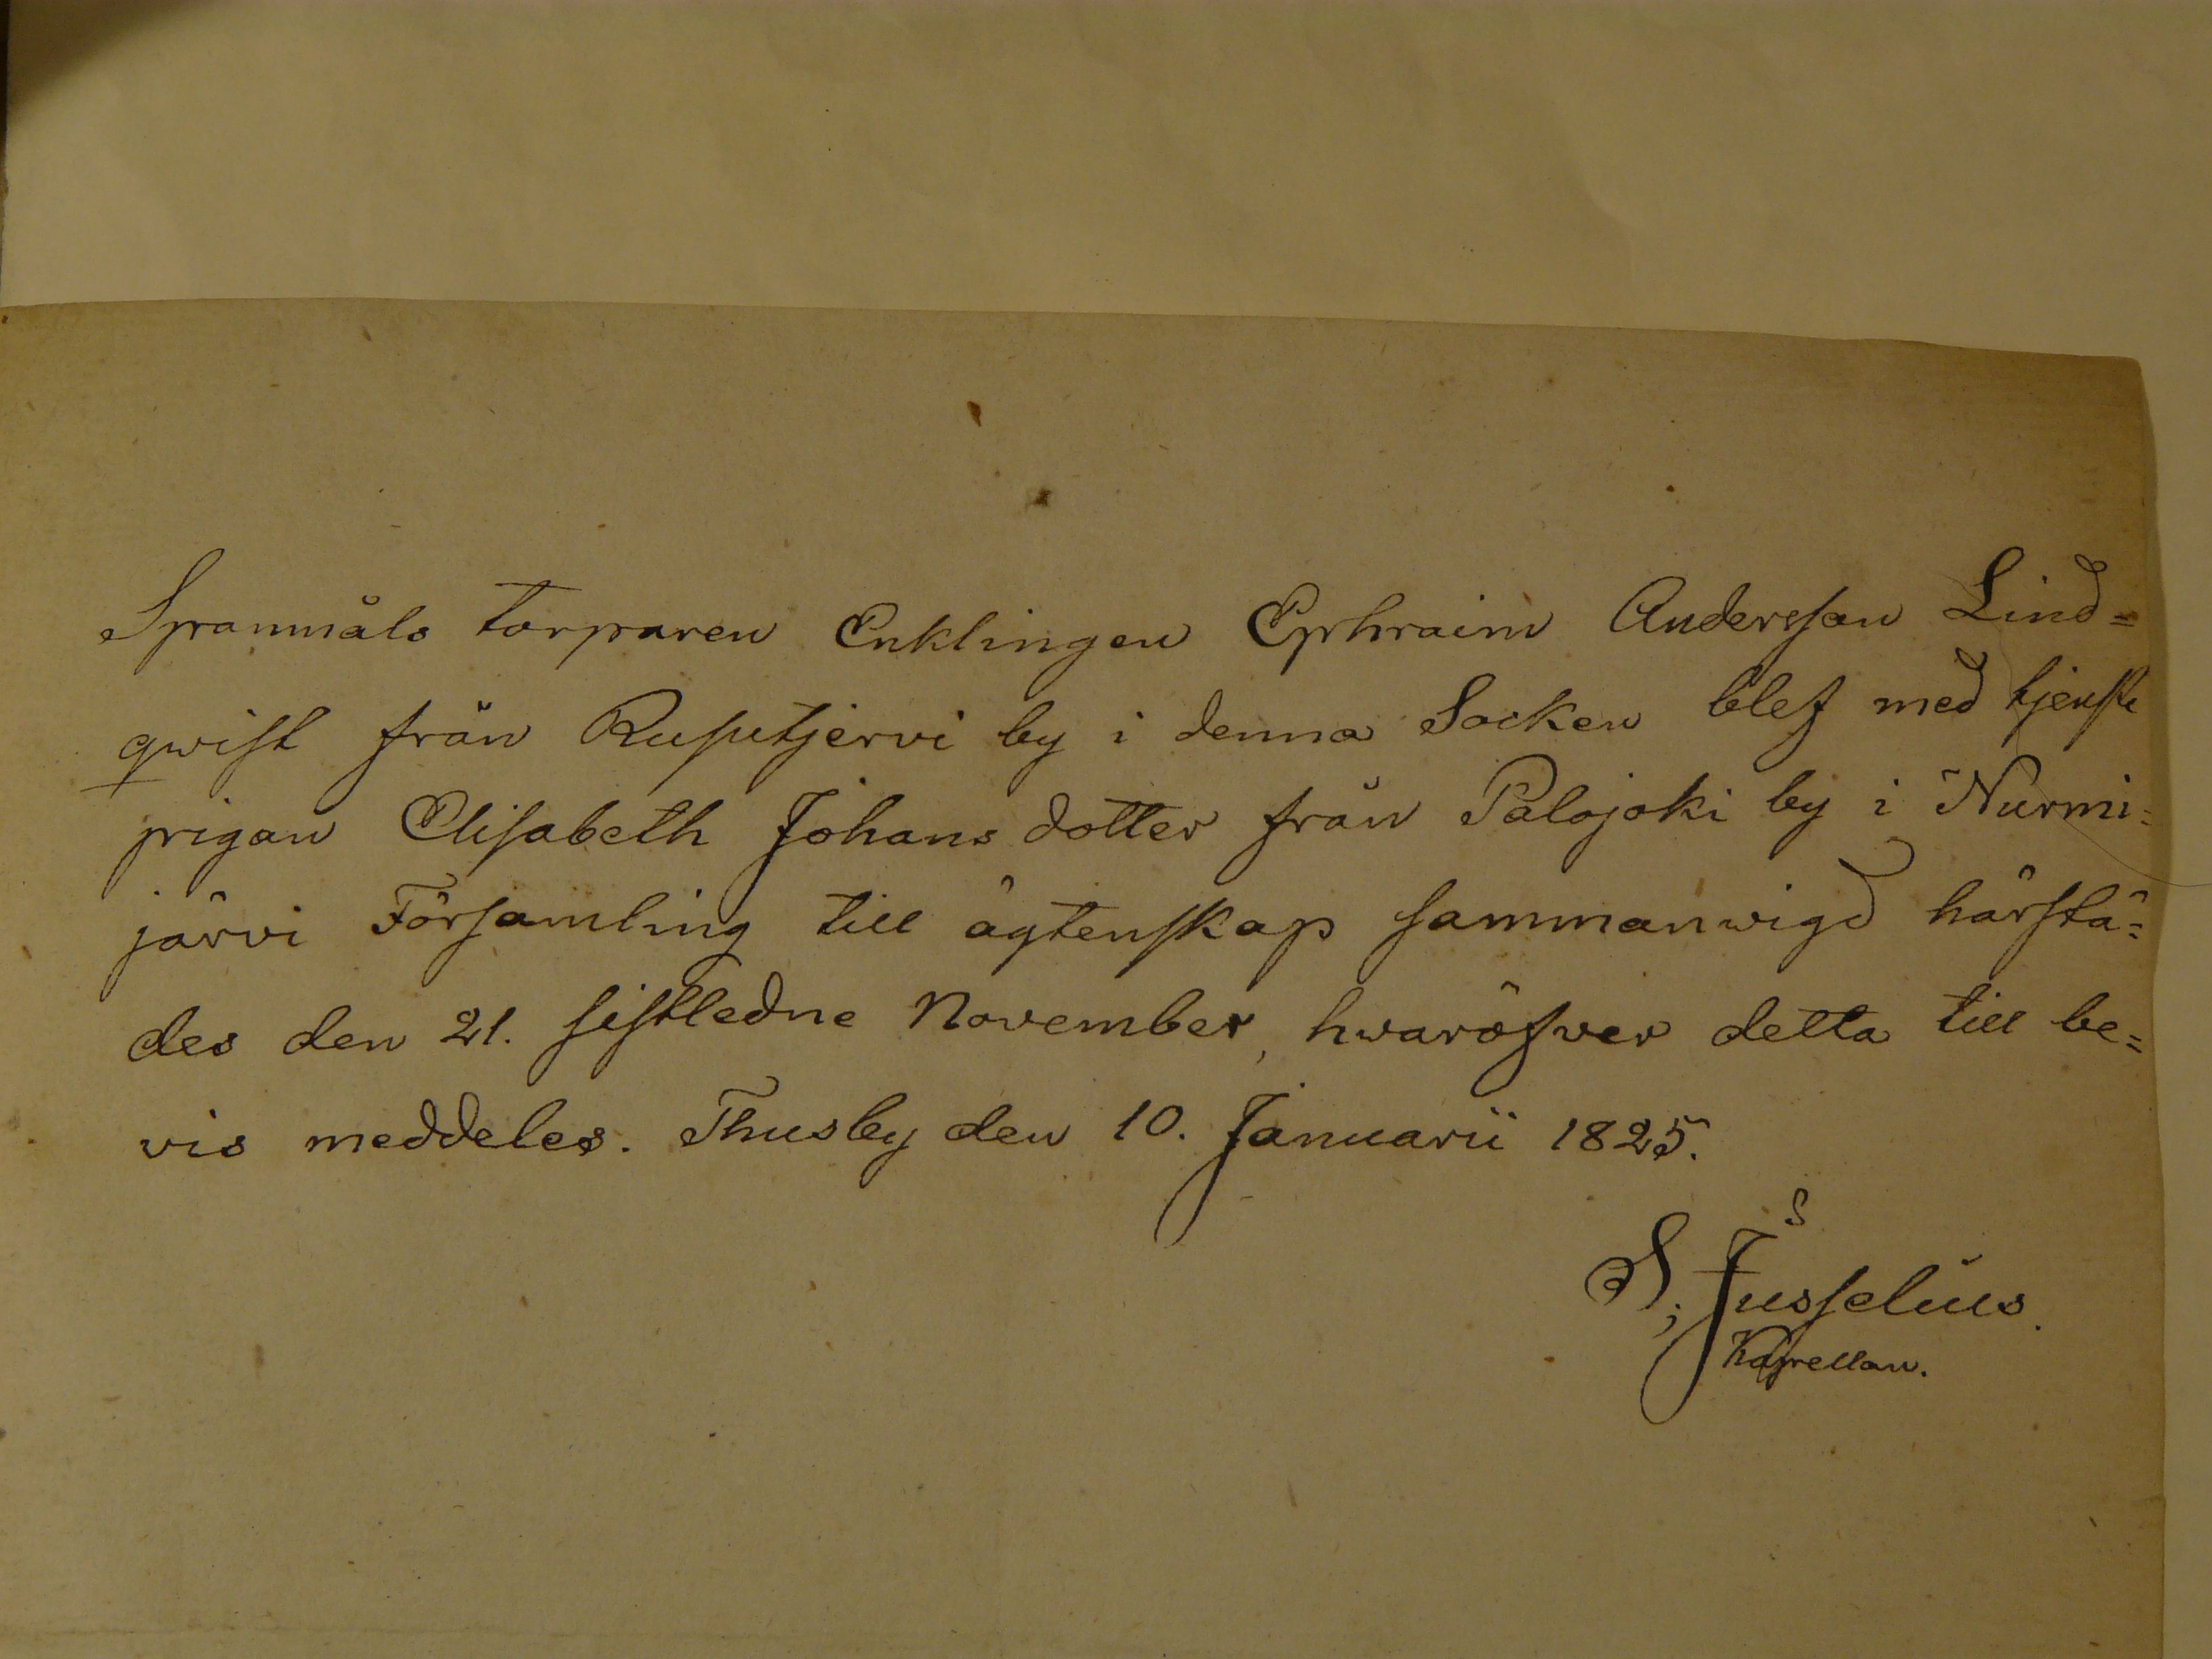 Spanmåls torparen Enklingen Ephraim Andersson Lind=
qwist från Rusutjervi by i denna Socken blef med tjenste
pigan Elisabeth Johans dotter från Palojoki by i Nurmi=
järvi Församling till ägtenskap sammanwigd härstä=
des den 21. sistledne November, hwaröfver detta till be=
vis meddeles. Thusby den 10. Januarii 1825.
S. Jusselius.
Kapellan.